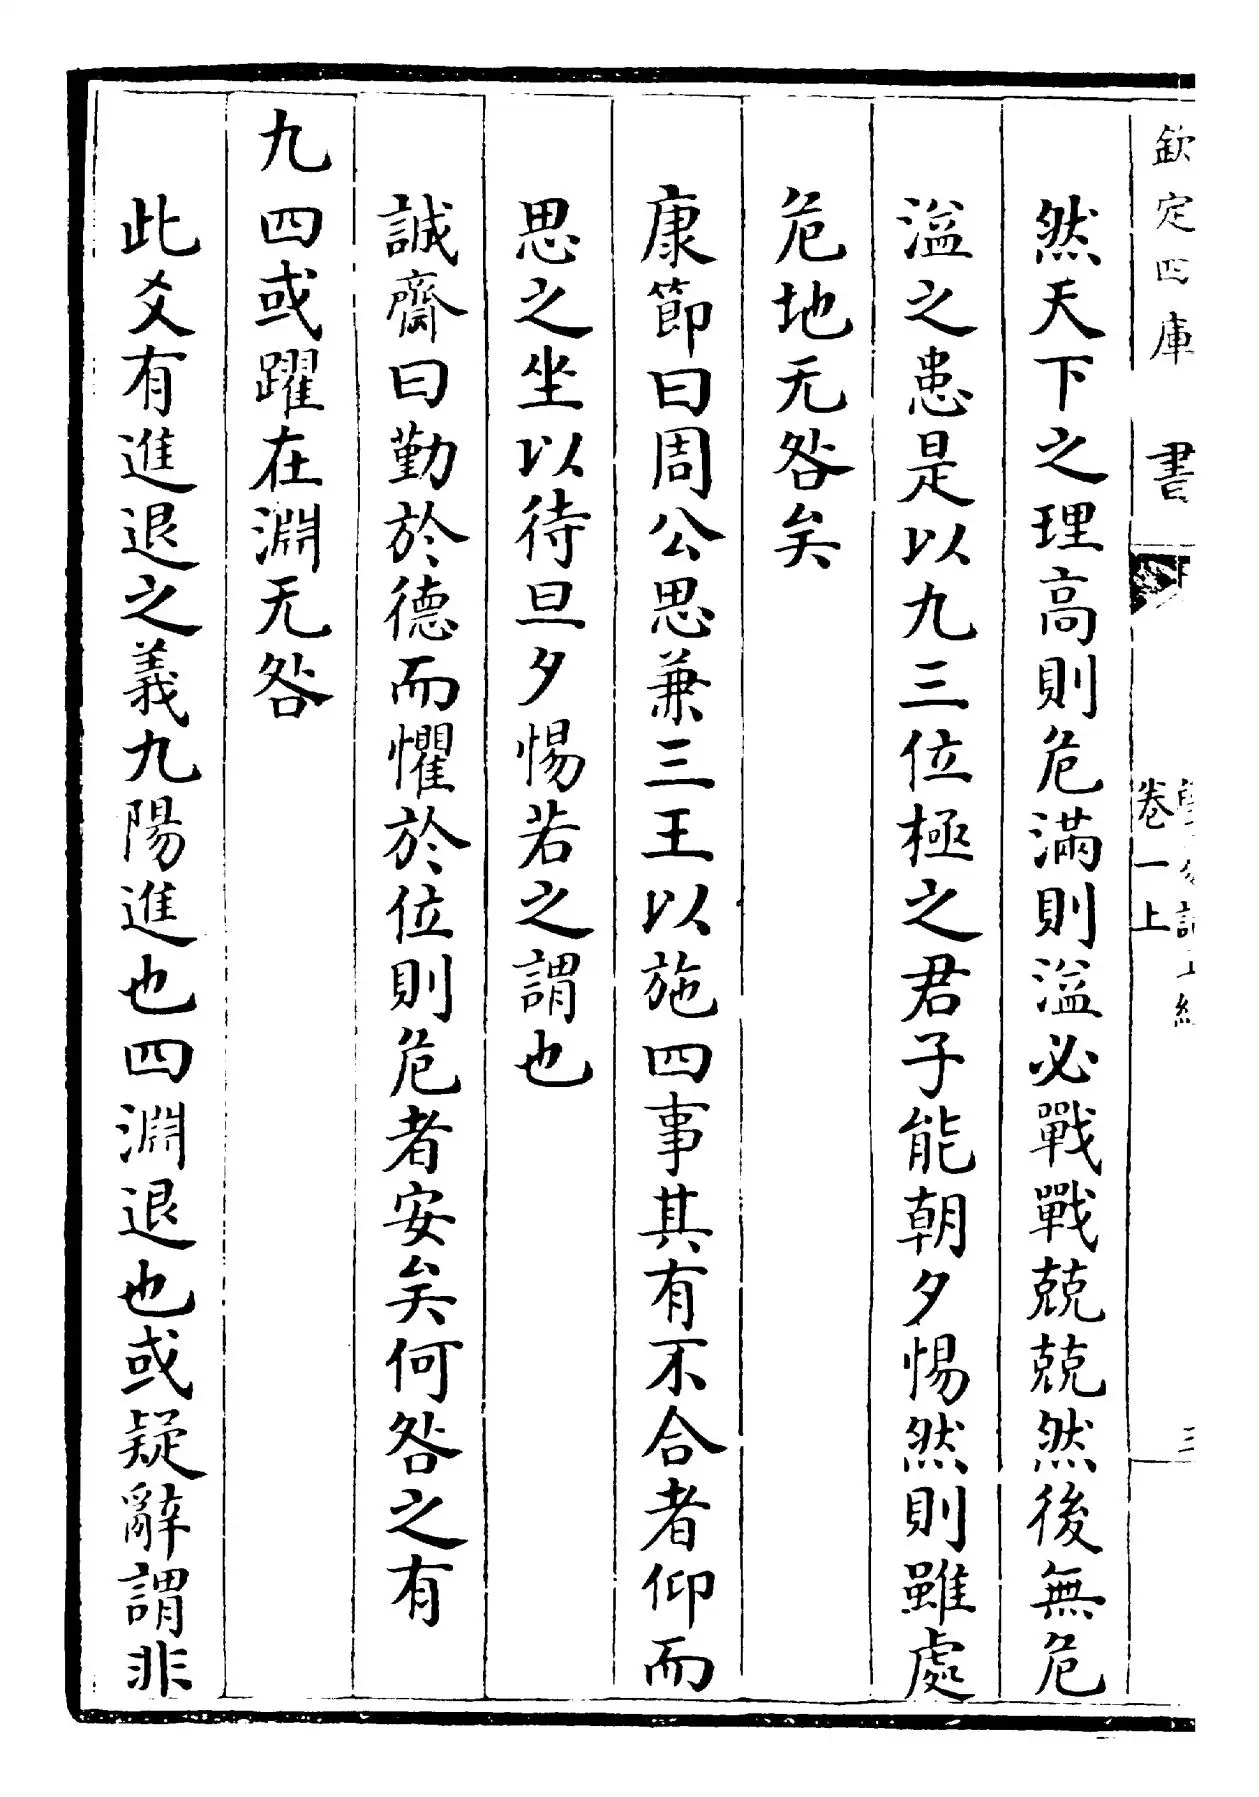 欽定四庫書
卷一上
然天下之理高則危滿則溢必戰戰兢兢然後無危
溢之患是以九三位極之君子能朝夕惕然則雖處
危地无咎矣
康節曰周公思兼三王以施四事其有不合者仰而
思之坐以待旦夕惕若之謂也
誠齋曰勤於德而懼於位則危者安矣何咎之有
九四或躍在淵无咎
此爻有進退之義九陽進也四淵退也或疑辭謂非